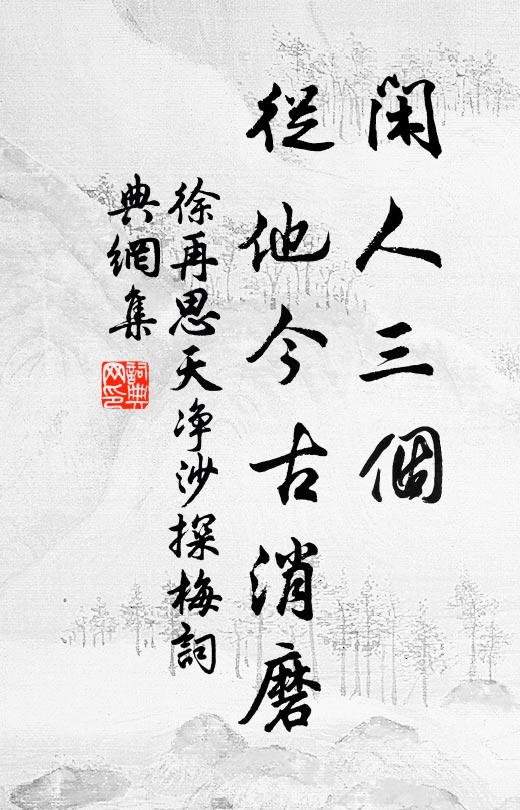 閑人三個
從他今古消磨
徐再思天净沙探梅詞
典網集
詞典網印